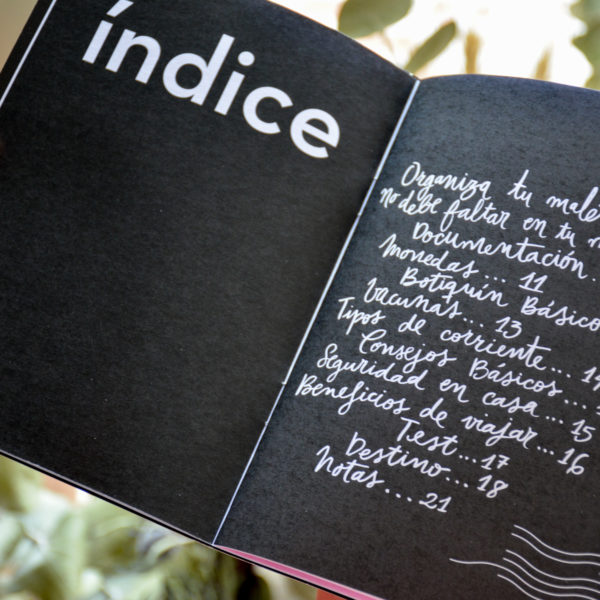 índice
Organiza tu
no debe faltar en tu
Documentación.
Monedas... 11
Botiquín Básico
Vacunas... 13
Tipos de corriente... 14
Consejos Básicos...
Seguridad en casa... 15
Beneficios de viajar... 16
Test... 17
Destino... 18
Notas.... 21